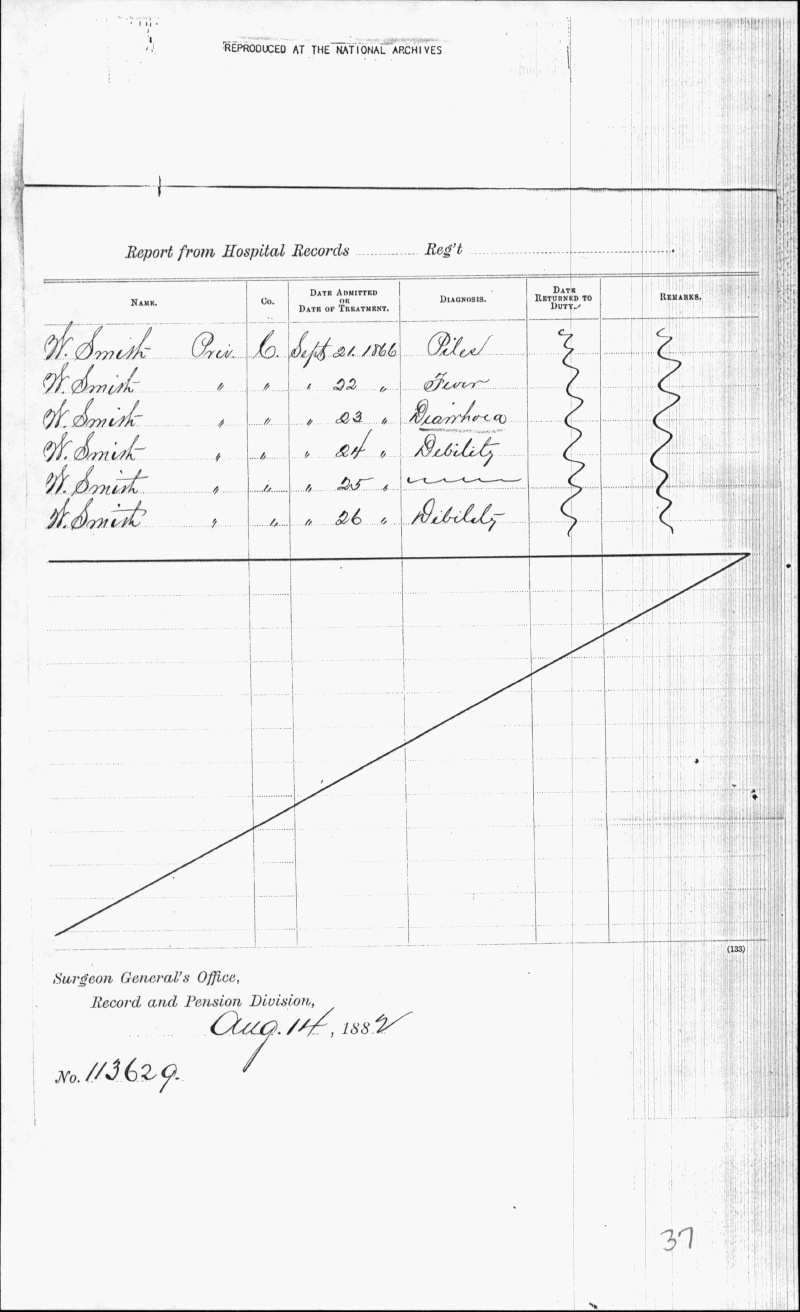 REPRODUCED AT THE NATIONAL ARCHIVES
Report from Hospital Records ............ Reg't ............
NAME. CO. DATE ADMITTED OR DATE OF TREATMENT. DIAGNOSIS. DATE RETURNED TO DUTY. REMARKS.
W. Smith Priv. C. Sept 21. 1866 Piles
W. Smith " " " 22 " Fever
W. Smith " " " 23 " Diarrhoea
W. Smith " " " 24 " Debility
W. Smith " " " 25 "
W. Smith " " " 26 " Debility
(133)
Surgeon General's Office,
Record and Pension Division,
Aug. 14, 1882
No. 113629.
37